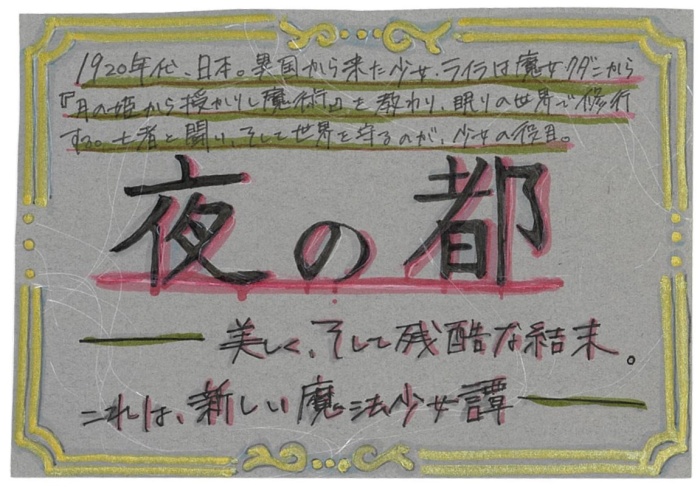 1920年代、日本。異国から来た少女、ライラは魔女クダニから
『月の姫から授かりし魔術』を教わり、眠りの世界で修行
する。亡者と闘い、そして世界を守るのが、少女の役目。
夜の都
美しく、そして残酷な結末。
これは、新しい魔法少女譚